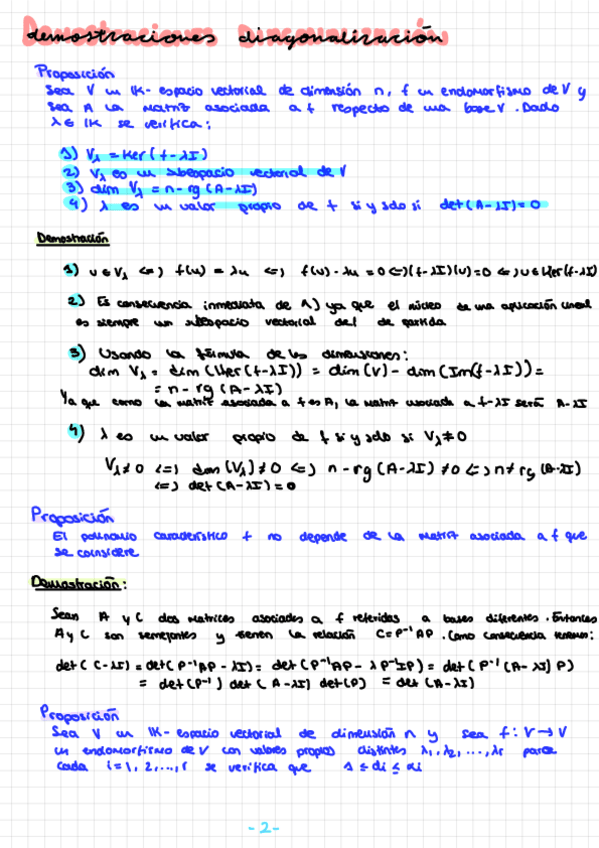 demostraciones diagonalización
Proposición
Sea V un IK-espacio vectorial de dimensión n, f un endomorfismo de V y
sea A la matriz asociada a f respecto de una base V. Dado
λ ∈ IK se verifica:
1) Vλ = Ker(f-λI)
2) Vλ es un subespacio vectorial de V
3) dim Vλ = n - rg (A-λI)
4) λ es un valor propio de f si y sólo si det(A-λI)=0
Demostración
1) u ∈ Vλ <=> f(u) = λu <=> f(u) - λu = 0 <=> (f-λI)(u)=0 <=> u ∈ Ker(f-λI)
2) Es consecuencia inmediata de 1) ya que el núcleo de una aplicación lineal
es siempre un subespacio vectorial del de partida
3) Usando la fórmula de las dimensiones:
dim Vλ = dim (Ker(f-λI)) = dim(V) - dim(Im(f-λI)) =
= n - rg (A-λI)
Ya que como la matriz asociada a f es A, la matriz asociada a f-λI será A-λI
4) λ es un valor propio de f si y sólo si Vλ≠0
Vλ≠0 <=> dim(Vλ)≠0 <=> n-rg(A-λI)≠0 <=> n≠rg(A-λI)
<=> det(A-λI)=0
Proposición
El polinomio característico f no depende de la matriz asociada a f que
se considere
Demostración:
Sean A y C dos matrices asociadas a f referidas a bases diferentes. Entonces
A y C son semejantes y tienen la relación C=P⁻¹AP. Como consecuencia tenemos:
det(C-λI) = det(P⁻¹AP - λI) = det(P⁻¹AP - λP⁻¹IP) = det(P⁻¹(A-λI)P)
= det(P⁻¹) det(A-λI) det(P) = det(A-λI)
Proposición
Sea V un IK-espacio vectorial de dimensión n y sea f: V→V
un endomorfismo de V con valores propios distintos λ₁, λ₂, ..., λr para
cada i=1, 2, ..., r se verifica que 1 ≤ di ≤ αi
-2-